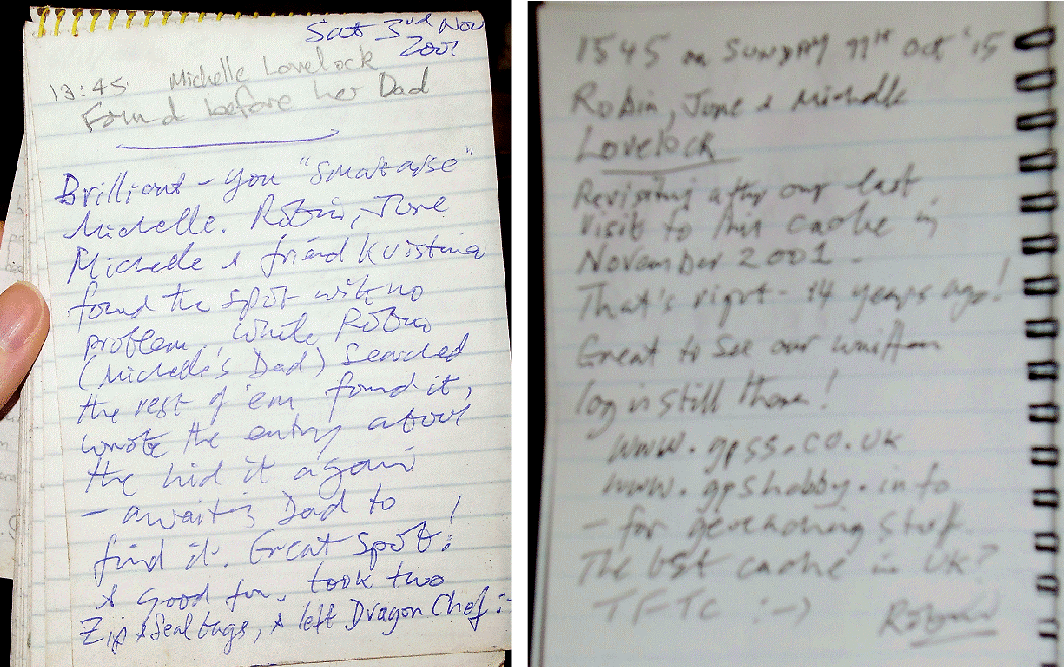 Sat 3rd Nov
2001
13:45 Michelle Lovelock
Found before her Dad
Brilliant - you "smartarse"
Michelle. Robin, June
Michelle & friend Kristina
found the spot with no
problem, while Robin
(Michelle's Dad) searched
the rest of 'em found it,
wrote the entry above
the hid it again
- awaiting Dad to
find it. Great spot!
& good fun. took two
Zip & Seal bags, & left Dragon Chef :-
1545 on Sunday 11th Oct '15
Robin, June & Michelle
Lovelock
Revisiting after our last
visit to this cache in
November 2001.
That's right - 14 years ago!
Great to see our written
log is still there!
www.gpss.co.uk
www.gpshobby.info
- for geocaching stuff.
The 1st cache in UK?
TFTC :-)
Robin